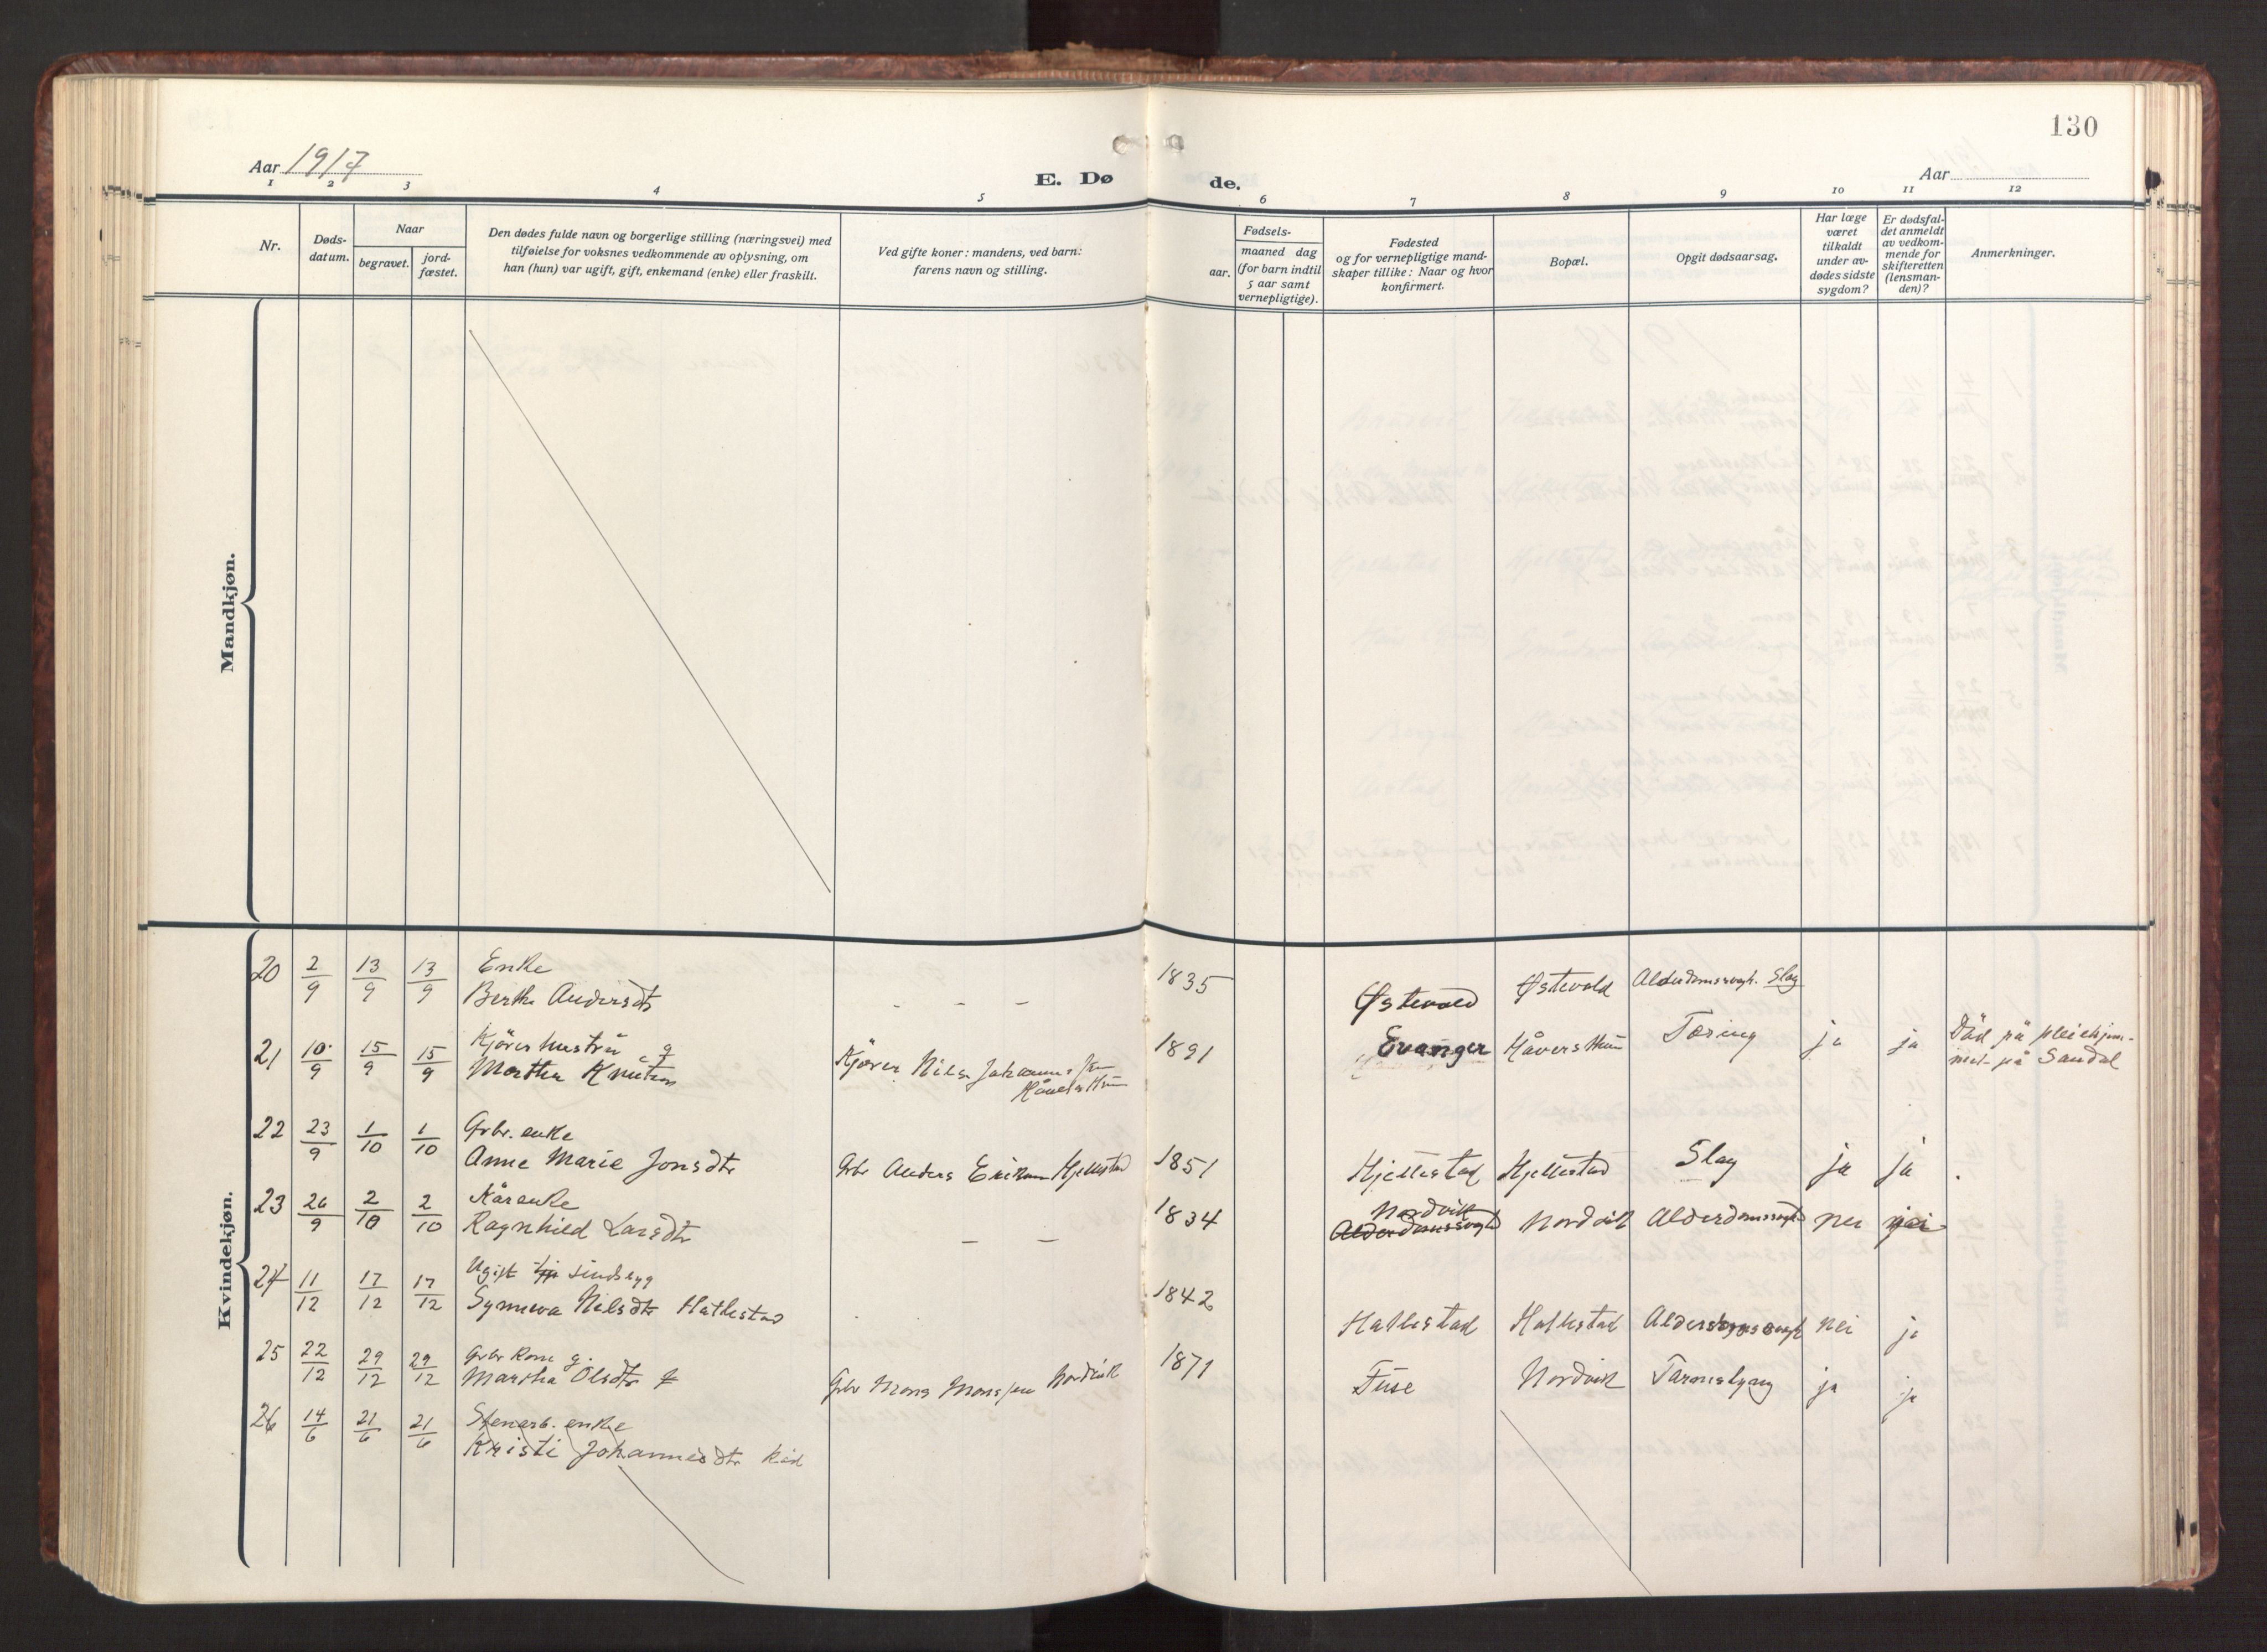 130
Aar 1917
E. Dø de.
Aar
1 2 3 4 5 6 7 8 9 10 11 12
Nr.
Døds-
datum.
Naar
begravet.
jord-
fæstet.
Den dødes fulde navn og borgerlige stilling (næringsvei) med
tilføielse for voksnes vedkommende av oplysning, om
han (hun) var ugift, gift, enkemand (enke) eller fraskilt.
Ved gifte koner: mandens, ved barn:
farens navn og stilling.
Fødsels-
aar.
maaned dag
(for barn indtil
5 aar samt
vernepligtige).
Fødested
og for vernepligtige mand-
skaper tillike: Naar og hvor
konfirmert.
Bopæl.
Opgit dødsaarsag.
Har læge
været
tilkaldt
under av-
dødes sidste
sygdom?
Er dødsfal-
det anmeldt
av vedkom-
mende for
skifteretten
(lensman-
den)?
Anmerkninger.
Mandkjøn.
Kvindekjøn.
20 2/9 13/9 13/9 Enke
Berthe Andersdtr - - - 1835 Østevold Østevold Alderdomssvagh. Slag
21 10/9 15/9 15/9 Kjörerhustru g
Martha Knutsen Kjörer Nils Johannessen
1891 Evanger Håvershun Tæring ja ja Död på pleiehjem-
met på Sandal
22 23/9 1/10 1/10 Grbr. enke
Anne Marie Jonsdtr Grbr Anders Eriksen Hjellestad 1851 Hjellestad Hjellestad Slag ja ja
23 26/9 2/10 2/10 Kårenke
Ragnhild Larsdtr - - 1834 Nordvik
Alderdomssvagh Nordvik Alderdomssvagh nei
24 11/12 17/12 17/12 Ugift sindsyg
Synneva Nilsdtr Hatlestad 1842 Hatlestad Hatlestad Alderdomssvagh nei ja
25 22/12 29/12 29/12 Grbr kone g.
Martha Olsdtr Grbr Mons Monssen Nordvik 1871 Fuse Nordvik Tarmslyng ja ja
26 14/6 21/6 21/6 Stenarb. enke
Kristi Johannesdtr